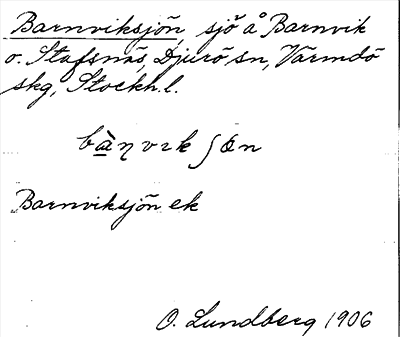 Barnviksjön, sjö å Barnvik
o. Stafsnäs, Djurö sn, Värmdö
skg, Stockh. l.
bànvɪk ʃön
Barnviksjön ek
O. Lundberg 1906